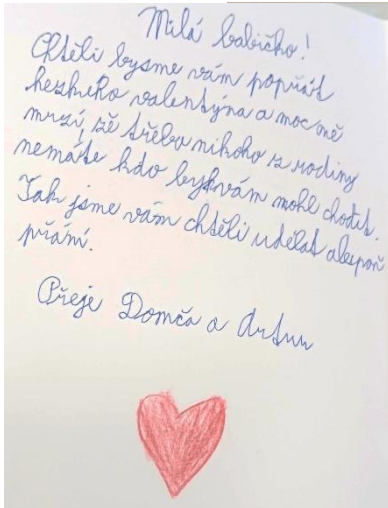 Milá babičko!
Chtěli bysme vám popřát
hezkého valentýna a moc mě
mrzí, že třeba nikoho z rodiny
nemáte kdo by k vám mohl chodit.
Tak jsme vám chtěli udělat alespoň
přání.
Přeje Domča a Artur